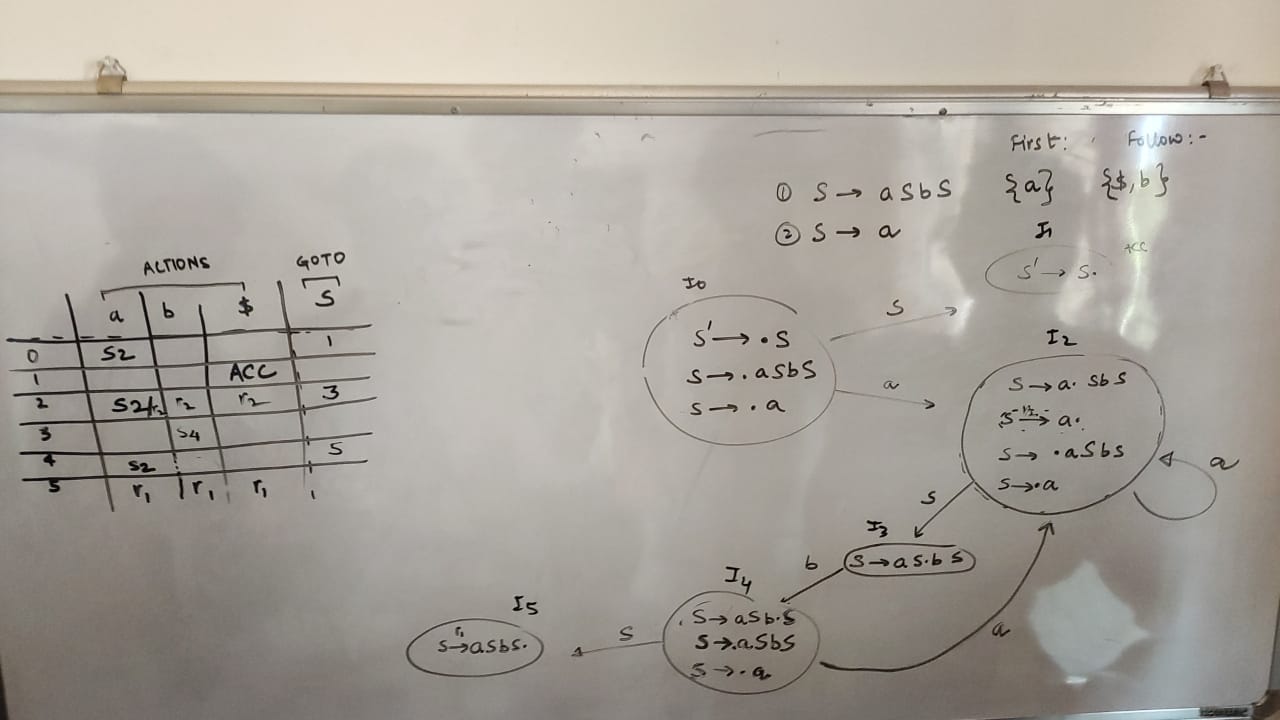 First: Follow:-
① S → aSbS {a} {$,b}
② S → a
I1
S' → S. ACC
ACTIONS GOTO
a b $ S
0 S2 1
1 ACC
2 S2/r2 r2 r2 3
3 S4
4 S2 5
5 r1 r1 r1
I0
S' → .S
S → .aSbS
S → .a
S
a
I2
S → a.SbS
S → a.
S → .aSbS
S → .a
a
S
I3
S → aS.bS
b
I4
S → aSb.S
S → .aSbS
S → .a
a
S
I5
r1
S → aSbS.